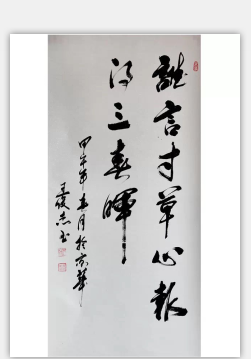 誰言寸草心報
得三春暉
甲午年月於京華
王俊志书